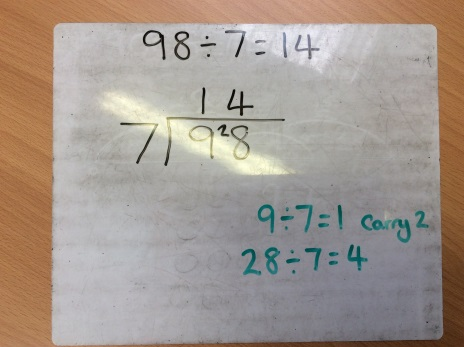 98÷7=14
14
7)9²8
9÷7=1 carry 2
28÷7=4